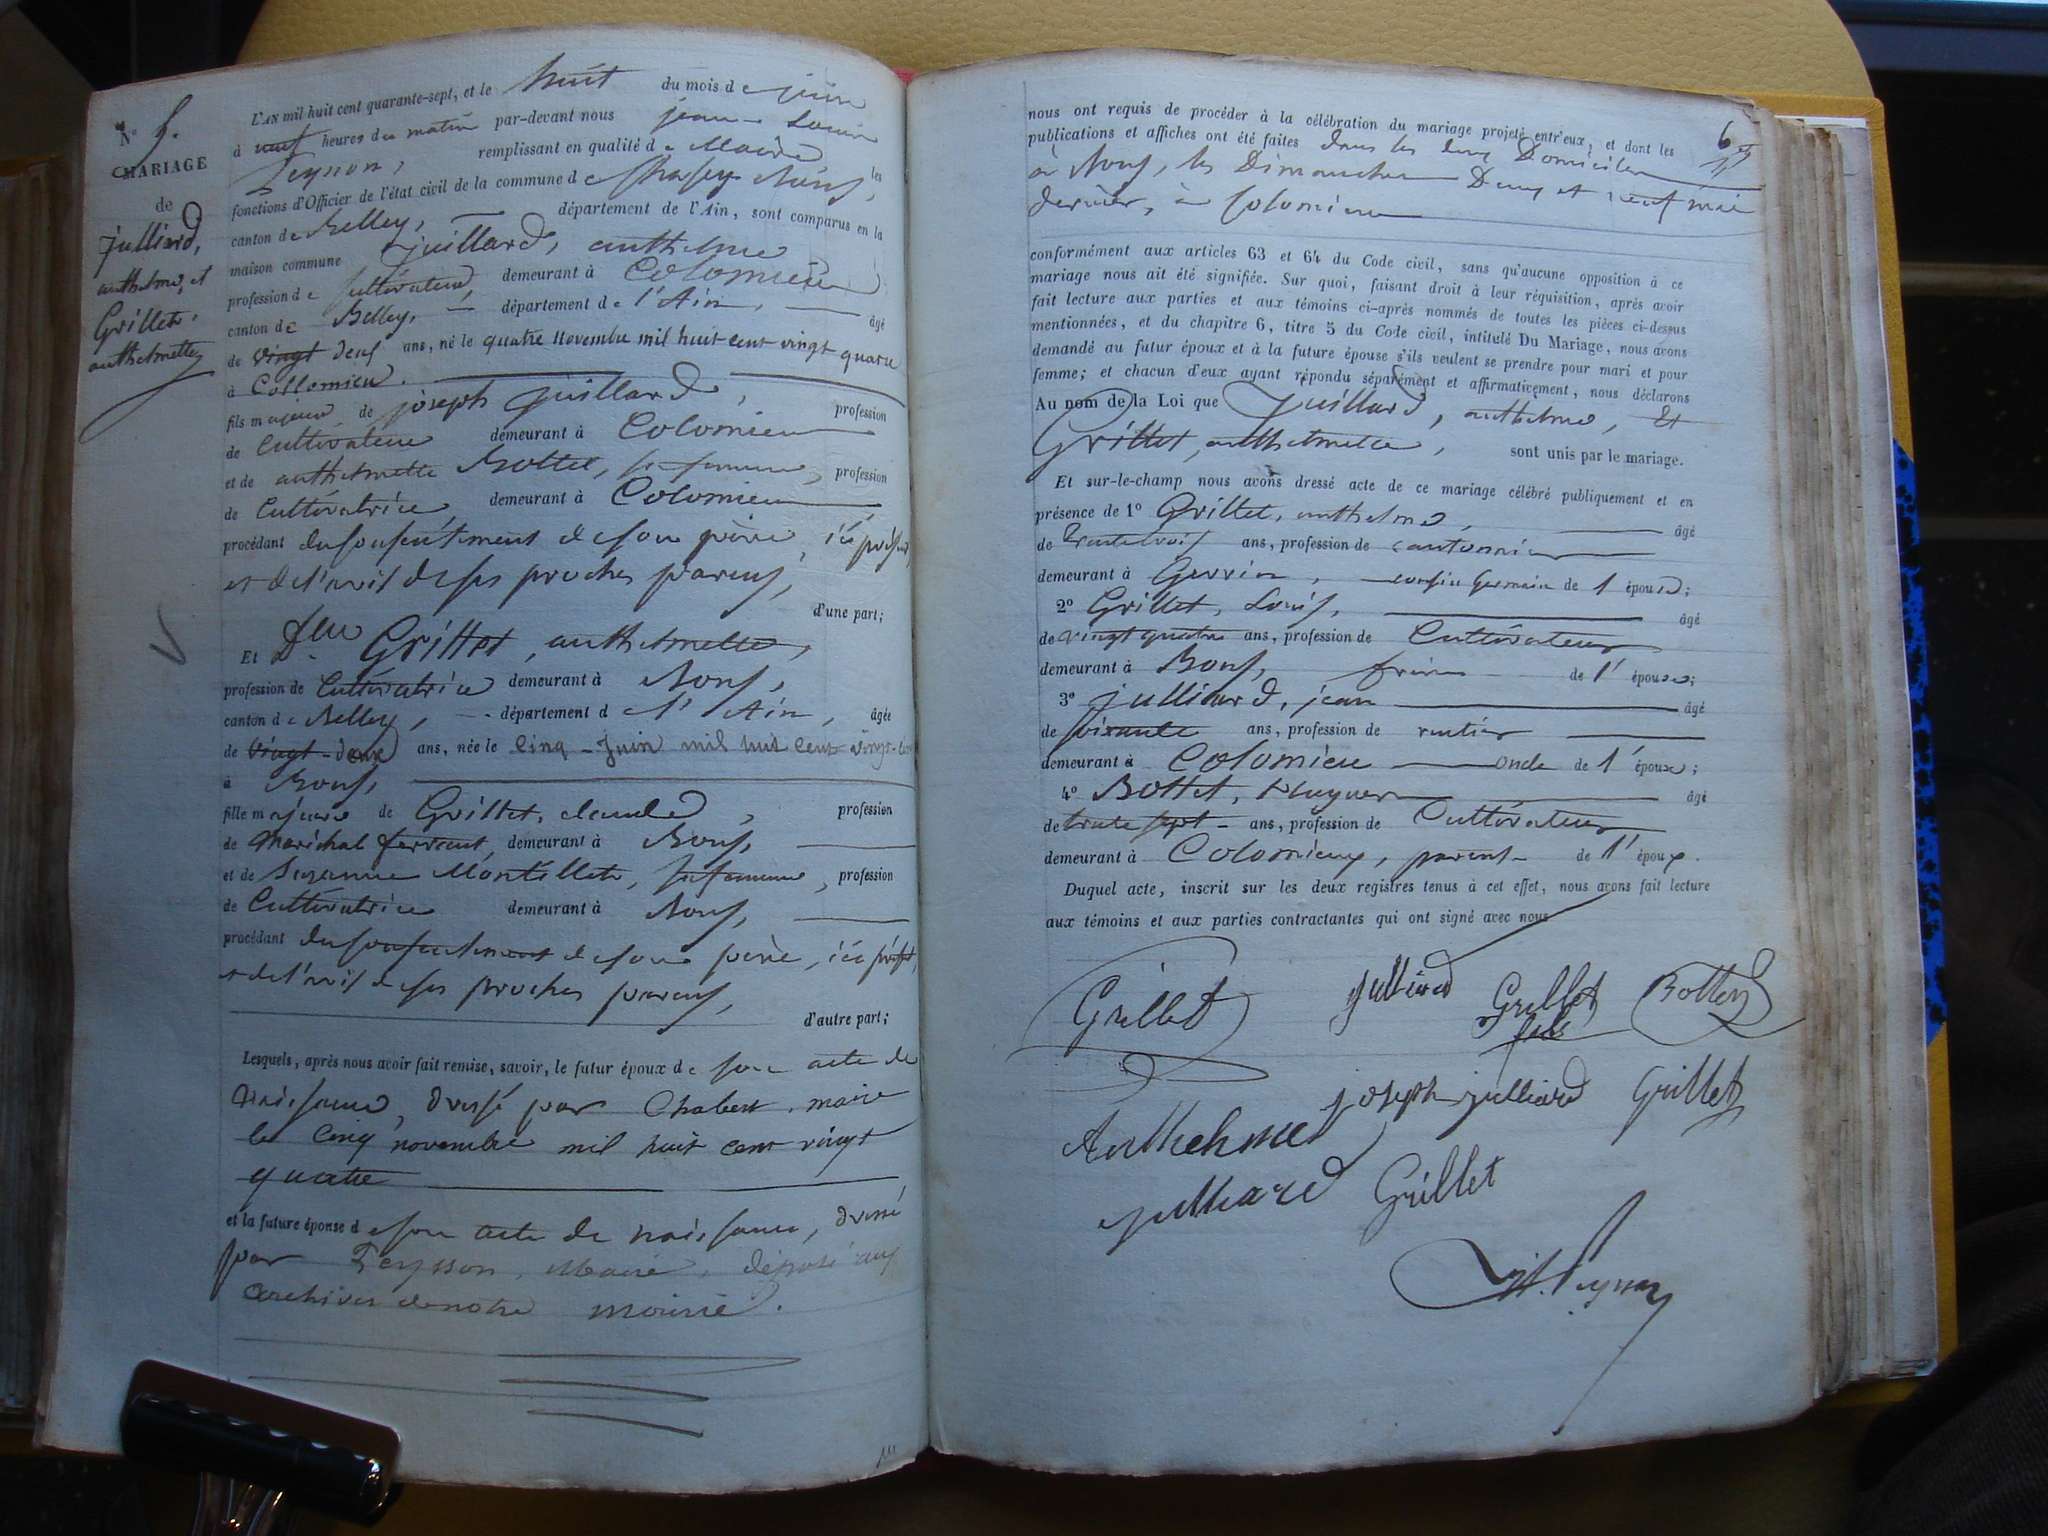 N° 5.
MARIAGE
de
Julliard,
anthelme, et
Grillet,
anthelmette
L'AN mil huit cent quarante-sept, et le huit du mois de juin
à neuf heures du matin par-devant nous jean Louis
Peysson, remplissant en qualité de Maire les
fonctions d'Officier de l'état civil de la commune de
canton de Belley, département de l'Ain, sont comparus en la
maison commune Juillard, anthelme
profession de Cultivateur, demeurant à Colomieu
canton de Belley, département de l'Ain, âgé
de vingt deux ans, né le quatre novembre mil huit cent vingt quatre
à Collomieu.
fils majeur de joseph Juillard, profession
de Cultivateur demeurant à Colomieu
et de anthelmette Bottet, sa femme, profession
de Cultivatrice demeurant à Colomieu,
procédant du consentement de son père, ici présent,
et de l'avis de ses proches parens,
d'une part;
Et Dlle Grillet, anthelmette,
profession de Cultivatrice demeurant à Bons,
canton de Belley, département de l'Ain, âgée
de vingt-deux ans, née le cinq Juin mil huit cent vingt-
à Bons,
fille majeure de Grillet, claude, profession
de Maréchal ferrant, demeurant à Bons,
et de Suzanne Montillet, sa femme, profession
de Cultivatrice demeurant à Bons,
procédant du consentement de son père, ici présent,
et de l'avis de ses proches parens,
d'autre part;
Lesquels, après nous avoir fait remise, savoir, le futur époux de son acte de
naissance, dressé par Chabert, maire
le cinq novembre mil huit cent vingt
quatre
et la future épouse de son acte de naissance, dressé
par Peysson, Maire, déposé aux
archives de notre mairie.
6
nous ont requis de procéder à la célébration du mariage projeté entr'eux, et dont les
publications et affiches ont été faites dans les deux Domiciles
à Bons, les Dimanches Deux et neuf mai
dernier, à Colomieu
conformément aux articles 63 et 64 du Code civil, sans qu'aucune opposition à ce
mariage nous ait été signifiée. Sur quoi, faisant droit à leur réquisition, après avoir
fait lecture aux parties et aux témoins ci-après nommés de toutes les pièces ci-dessus
mentionnées, et du chapitre 6, titre 5 du Code civil, intitulé Du Mariage, nous avons
demandé au futur époux et à la future épouse s'ils veulent se prendre pour mari et pour
femme; et chacun d'eux ayant répondu séparément et affirmativement, nous déclarons
Au nom de la Loi que Juillard, anthelme, Et
Grillet, anthelmette, sont unis par le mariage.
Et sur-le-champ nous avons dressé acte de ce mariage célébré publiquement et en
présence de 1° Grillet, anthelme, âgé
de trente trois ans, profession de cantonnier
demeurant à cousin Germain de l'épouse;
2° Grillet, Louis, âgé
de vingt quatre ans, profession de Cultivateur
demeurant à Bons, frère de l'épouse;
3° Julliard, jean âgé
de soixante ans, profession de rentier
demeurant à Colomieu oncle de l'époux;
4° Bottet, âgé
de trente sept ans, profession de Cultivateur
demeurant à Colomieux, parent de l'époux.
Duquel acte, inscrit sur les deux registres tenus à cet effet, nous avons fait lecture
aux témoins et aux parties contractantes qui ont signé avec nous
Grillet Julliard Grillet Bottet
joseph julliard Grillet
Anthelme
julliard Grillet
Peysson